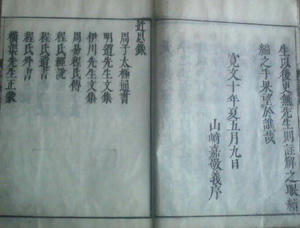 生以後更無先生則註解之取捨
編之手果望於誰哉
寛文十年夏五月九日
山﨑嘉敬義序
近思録
周子太極通書
明道先生文集
伊川先生文集
周易程氏傳
程氏經說
程氏遺書
程氏外書
橫渠先生正蒙